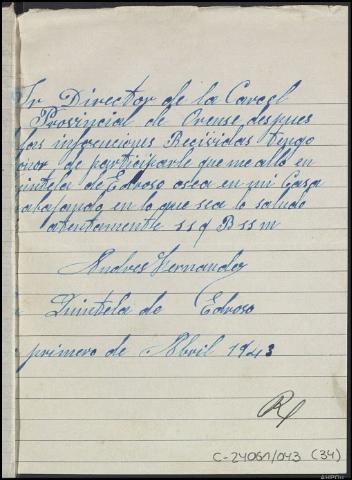 Sr Director de la Carcel
Provincial de Orense, despues
las informciones Recividas tengo
onor de participarle que me allo en
uintela de Edroso osea en mi Casa
rabajando en lo que sea lo saluda
atentamente s s q B s s m
Andres Fernandez
Quintela de Edroso
primero de Abril 1943
C-24061/043 (34)
AHPOU